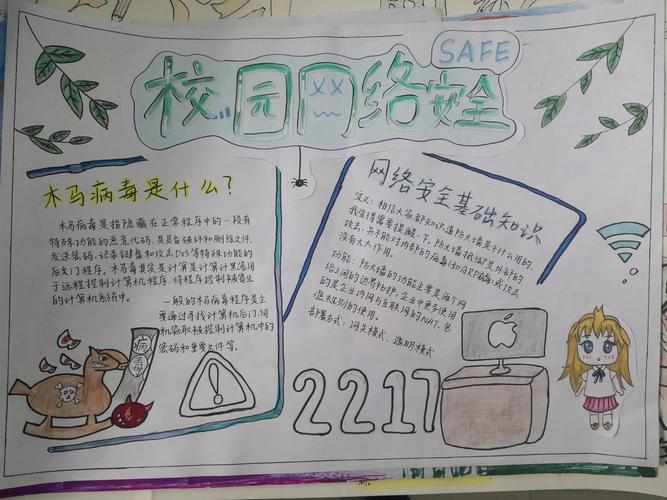 SAFE
校园网络安全
木马病毒是什么?
木马病毒是指隐藏在正常程序中的一段有
特殊功能的恶意代码,是具备破坏和删除文件、
发送密码、记录键盘和攻击Dos等特殊功能的
后门程序,木马毒其实是计算是计算计黑客用
于远程控制计算机程序,将程序控制被寄生
的计算机系统中。
一般的木马病毒程序是主
要通过寻找计算机后门,伺
机窃取被控制计算机中的
密码和重要文件等。
病毒
网络安全基础知识
定义:相信大家都知道防火墙是干什么用的,
我觉得需要提醒一下,防火墙抵御的是外部的
攻击,并不能对内部的病毒(如ARP病毒)或攻击
没有太大作用。
功能:防火墙的功能主要是两个网
络之间的边界防护,企业中更多使用
的是企业内网与互联网的NAT、包
滤规则的使用。
部署方式:网关模式、透明模式
2217